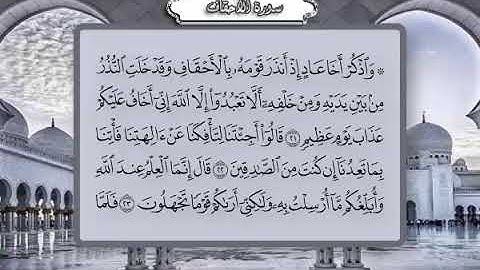 سورة الأحقاف
۞ وَٱذۡكُرۡ أَخَا عَادٍ إِذۡ أَنذَرَ قَوۡمَهُۥ بِٱلۡأَحۡقَافِ وَقَدۡ خَلَتِ ٱلنُّذُرُ
مِنۢ بَيۡنِ يَدَيۡهِ وَمِنۡ خَلۡفِهِۦٓ أَلَّا تَعۡبُدُوٓاْ إِلَّا ٱللَّهَ إِنِّيٓ أَخَافُ عَلَيۡكُمۡ
عَذَابَ يَوۡمٍ عَظِيمٖ ٢١ قَالُوٓاْ أَجِئۡتَنَا لِتَأۡفِكَنَا عَنۡ ءَالِهَتِنَا فَأۡتِنَا
بِمَا تَعِدُنَآ إِن كُنتَ مِنَ ٱلصَّٰدِقِينَ ٢٢ قَالَ إِنَّمَا ٱلۡعِلۡمُ عِندَ ٱللَّهِ
وَأُبَلِّغُكُم مَّآ أُرۡسِلۡتُ بِهِۦ وَلَٰكِنِّيٓ أَرَىٰكُمۡ قَوۡمٗا تَجۡهَلُونَ ٢٣ فَلَمَّا